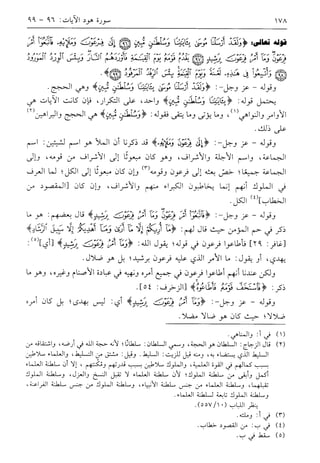 ١٧٨ سورة هود الآيات: ٩٦ - ٩٩
قوله تعالى: ﴿وَلَقَدْ أَرْسَلْنَا مُوسَىٰ بِآيَاتِنَا وَسُلْطَانٍ مُّبِينٍ ﴿٩٦﴾ إِلَىٰ فِرْعَوْنَ وَمَلَإِيْهِ فَاتَّبَعُوا أَمْرَ
فِرْعَوْنَ وَمَا أَمْرُ فِرْعَوْنَ بِرَشِيدٍ ﴿٩٧﴾ يَقْدُمُ قَوْمَهُ يَوْمَ الْقِيَامَةِ فَأَوْرَدَهُمُ النَّارَ وَبِئْسَ الْوِرْدُ الْمَوْرُودُ
﴿٩٨﴾ وَأُتْبِعُوا فِي هَٰذِهِ لَعْنَةً وَيَوْمَ الْقِيَامَةِ بِئْسَ الرِّفْدُ الْمَرْفُودُ ﴿٩٩﴾﴾.
وقوله - عز وجل-: ﴿وَلَقَدْ أَرْسَلْنَا مُوسَىٰ بِآيَاتِنَا وَسُلْطَانٍ مُّبِينٍ﴾ وهي الحجج.
يحتمل قوله: ﴿بِآيَاتِنَا وَسُلْطَانٍ مُّبِينٍ﴾ واحد، على التكرار، فإن كانت الآيات هي
الأوامر والنواهي(١)، وما يؤتى وما يتقى فقوله: ﴿وَسُلْطَانٍ مُّبِينٍ﴾ هي الحجج والبراهين(٢)
على ذلك.
وقوله - عز وجل-: ﴿إِلَىٰ فِرْعَوْنَ وَمَلَإِيْهِ﴾ قد ذكرنا أن الملأ هو اسم لشيئين: اسم
الجماعة، واسم الأجلة والأشراف، وهو كان مبعوثًا إلى الأشراف من قومه، وإلى
الجماعة جميعًا؛ خص بعثه إلى فرعون وقومه(٣) وإن كان مبعوثًا إلى الكل؛ لما العرف
في الملوك أنهم إنما يخاطبون الكبراء منهم والأشراف، وإن كان [المقصود من
الخطاب](٤) الكل.
وقوله - عز وجل-: ﴿فَاتَّبَعُوا أَمْرَ فِرْعَوْنَ وَمَا أَمْرُ فِرْعَوْنَ بِرَشِيدٍ﴾ قال بعضهم: هو ما
ذكر في حم المؤمن حيث قال لهم: ﴿مَا أُرِيكُمْ إِلَّا مَا أَرَىٰ وَمَا أَهْدِيكُمْ إِلَّا سَبِيلَ الرَّشَادِ﴾
[غافر: ٢٩] فأطاعوا فرعون في قوله؛ يقول الله: ﴿وَمَا أَمْرُ فِرْعَوْنَ بِرَشِيدٍ﴾ [أي](٥):
يهدي، أو يقول: ما الأمر الذي عليه فرعون برشيد؛ بل هو ضلال.
ولكن عندنا أنهم أطاعوا فرعون في جميع أمره ونهيه في عبادة الأصنام وغيره، وهو ما
ذكر: ﴿فَاسْتَخَفَّ قَوْمَهُ فَأَطَاعُوهُ﴾ [الزخرف: ٥٤].
وقوله - عز وجل-: ﴿وَمَا أَمْرُ فِرْعَوْنَ بِرَشِيدٍ﴾ أي: ليس بهدى؛ بل كان أمره
ضلالا؛ حيث كان هو ضالا مضلا.
(١) في أ: والمناهي.
(٢) قال الزجاج: السلطان هو الحجة، وسمي السلطان: سلطانًا؛ لأنه حجة الله في أرضه، واشتقاقه من
السليط الذي يستضاء به، ومنه قيل للزيت: السليط. وقيل: مشتق من التسليط، والعلماء سلاطين
بسبب كمالهم في القوة العلمية، والملوك سلاطين بسبب قدرتهم ومكنتهم، إلا أن سلطنة العلماء
أكمل وأبقى من سلطنة الملوك؛ لأن سلطنة العلماء لا تقبل النسخ والعزل، وسلطنة الملوك
تقبلهما، وسلطنة العلماء من جنس سلطنة الأنبياء، وسلطنة الملوك من جنس سلطنة الفراعنة،
وسلطنة الملوك تابعة لسلطنة العلماء.
ينظر اللباب (١٠/ ٥٥٧)
(٣) في أ: وملئه.
(٤) في ب: من القصد خطاب.
(٥) سقط في ب.